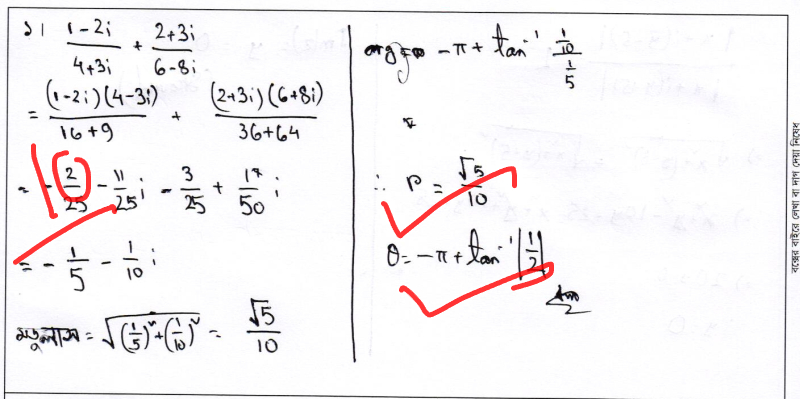 ১। \frac{1-2i}{4+3i} + \frac{2+3i}{6-8i}
= \frac{(1-2i)(4-3i)}{16+9} + \frac{(2+3i)(6+8i)}{36+64}
= -\frac{2}{25} - \frac{11}{25}i - \frac{3}{25} + \frac{17}{50}i
= -\frac{1}{5} - \frac{1}{10}i
মডুলাস = \sqrt{(\frac{1}{5})^২+(\frac{1}{10})^২} = \frac{\sqrt{5}}{10}
-π + tan^{-1} \frac{\frac{1}{10}}{\frac{1}{5}}
∴ r = \frac{\sqrt{5}}{10}
θ = -π + tan^{-1} |\frac{1}{2}|
Ans
বক্সের বাইরে লেখা বা দাগ দেয়া নিষেধ